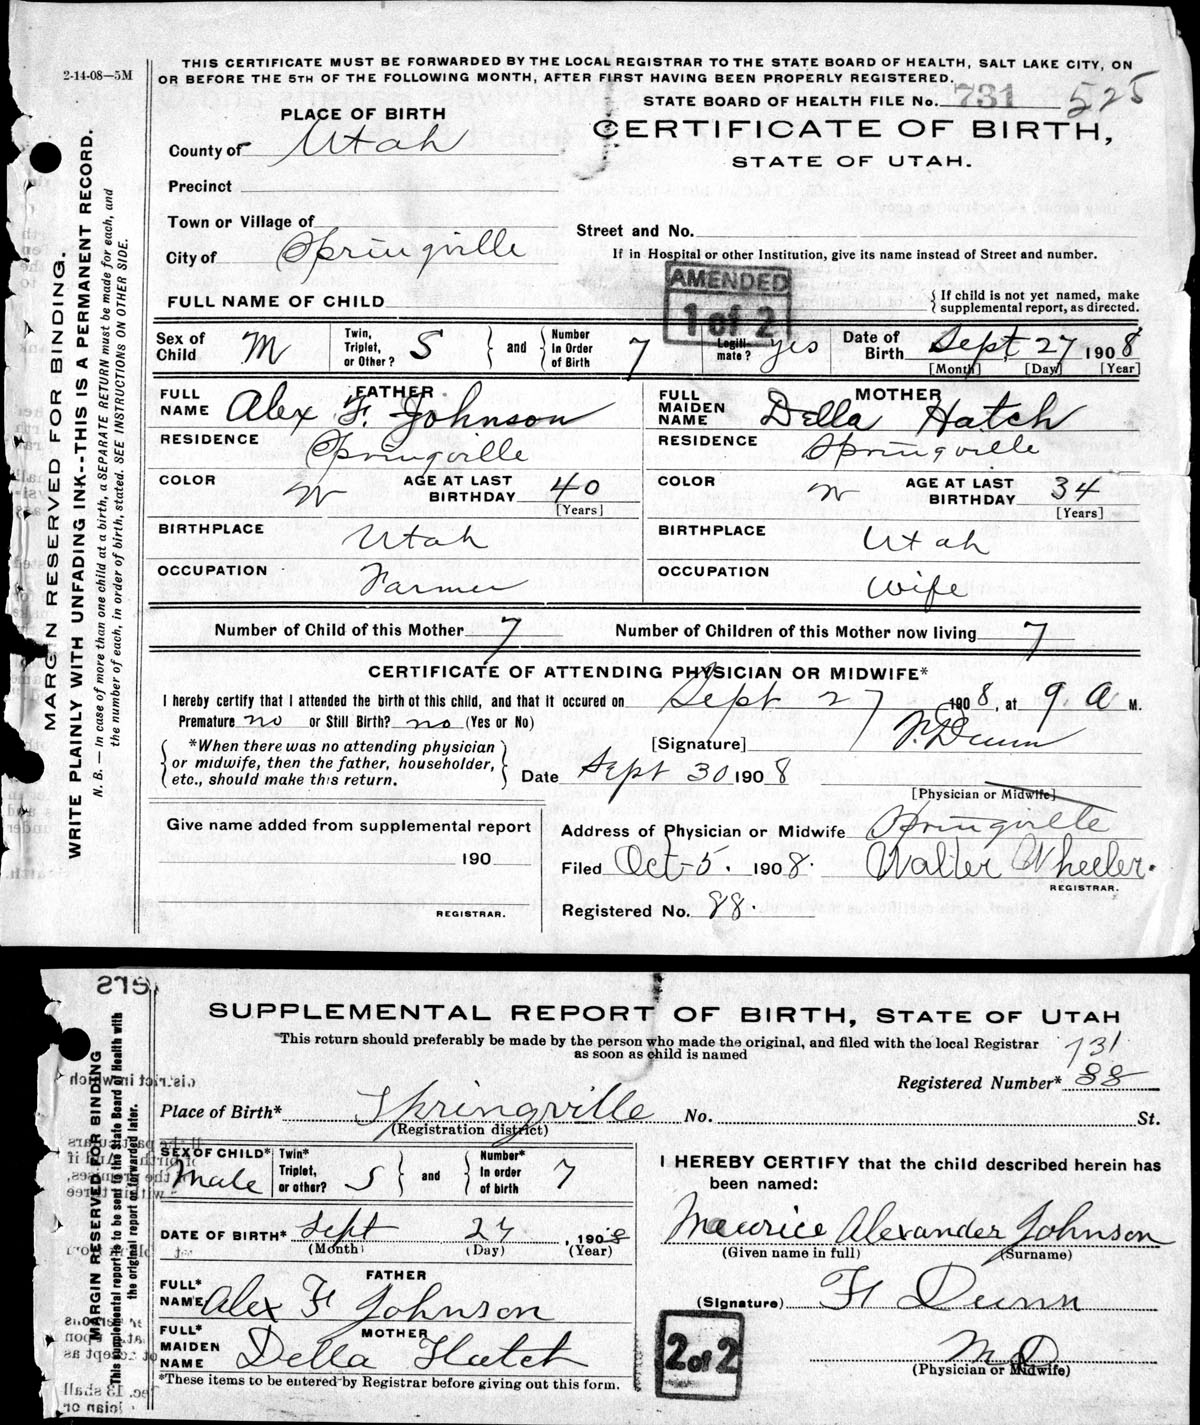 2-14-08—5M
THIS CERTIFICATE MUST BE FORWARDED BY THE LOCAL REGISTRAR TO THE STATE BOARD OF HEALTH, SALT LAKE CITY, ON
OR BEFORE THE 5TH OF THE FOLLOWING MONTH, AFTER FIRST HAVING BEEN PROPERLY REGISTERED.
STATE BOARD OF HEALTH FILE No. 731 525
PLACE OF BIRTH
CERTIFICATE OF BIRTH,
STATE OF UTAH.
County of Utah
Precinct
Town or Village of
Street and No.
City of Springville
If in Hospital or other Institution, give its name instead of Street and number.
AMENDED
1 of 2
FULL NAME OF CHILD
{ If child is not yet named, make
supplemental report, as directed.
Sex of Child M
Twin, Triplet, or Other? S } and { Number In Order of Birth 7
Legiti- mate? yes
Date of Birth Sept 27 1908
[Month] [Day] [Year]
FATHER
FULL NAME Alex F. Johnson
RESIDENCE Springville
COLOR W AGE AT LAST BIRTHDAY 40
[Years]
BIRTHPLACE Utah
OCCUPATION Farmer
MOTHER
FULL MAIDEN NAME Della Hatch
RESIDENCE Springville
COLOR W AGE AT LAST BIRTHDAY 34
[Years]
BIRTHPLACE Utah
OCCUPATION Wife
Number of Child of this Mother 7 Number of Children of this Mother now living 7
CERTIFICATE OF ATTENDING PHYSICIAN OR MIDWIFE*
I hereby certify that I attended the birth of this child, and that it occured on Sept 27 1908, at 9. A M.
Premature no or Still Birth? no (Yes or No)
*When there was no attending physician
or midwife, then the father, householder,
etc., should make this return.
[Signature] F. Dunn
Date Sept 30 1908
[Physician or Midwife]
Give name added from supplemental report
190
REGISTRAR.
Address of Physician or Midwife Springville
Filed Oct-5. 1908. Walter Wheeler.
REGISTRAR.
Registered No. 88.
MARGIN RESERVED FOR BINDING.
WRITE PLAINLY WITH UNFADING INK--THIS IS A PERMANENT RECORD.
N. B. — In case of more than one child at a birth, a SEPARATE RETURN must be made for each, and
the number of each, in order of birth, stated. SEE INSTRUCTIONS ON OTHER SIDE.
SUPPLEMENTAL REPORT OF BIRTH, STATE OF UTAH
This return should preferably be made by the person who made the original, and filed with the local Registrar
as soon as child is named
731
Registered Number* 88
Place of Birth* Springville No. St.
(Registration district)
SEX OF CHILD* Male
Twin* Triplet, or other? S } and { Number* In order of birth 7
DATE OF BIRTH* Sept 27, 1908
(Month) (Day) (Year)
FATHER
FULL* NAME Alex F Johnson
MOTHER
FULL* MAIDEN NAME Della Hatch
*These items to be entered by Registrar before giving out this form.
I HEREBY CERTIFY that the child described herein has
been named:
Maurice Alexander Johnson
(Given name in full) (Surname)
(Signature) F Dunn
M D
(Physician or Midwife)
2 of 2
MARGIN RESERVED FOR BINDING
This supplemental report to be sent to the State Board of Health with
the original report or forwarded later.